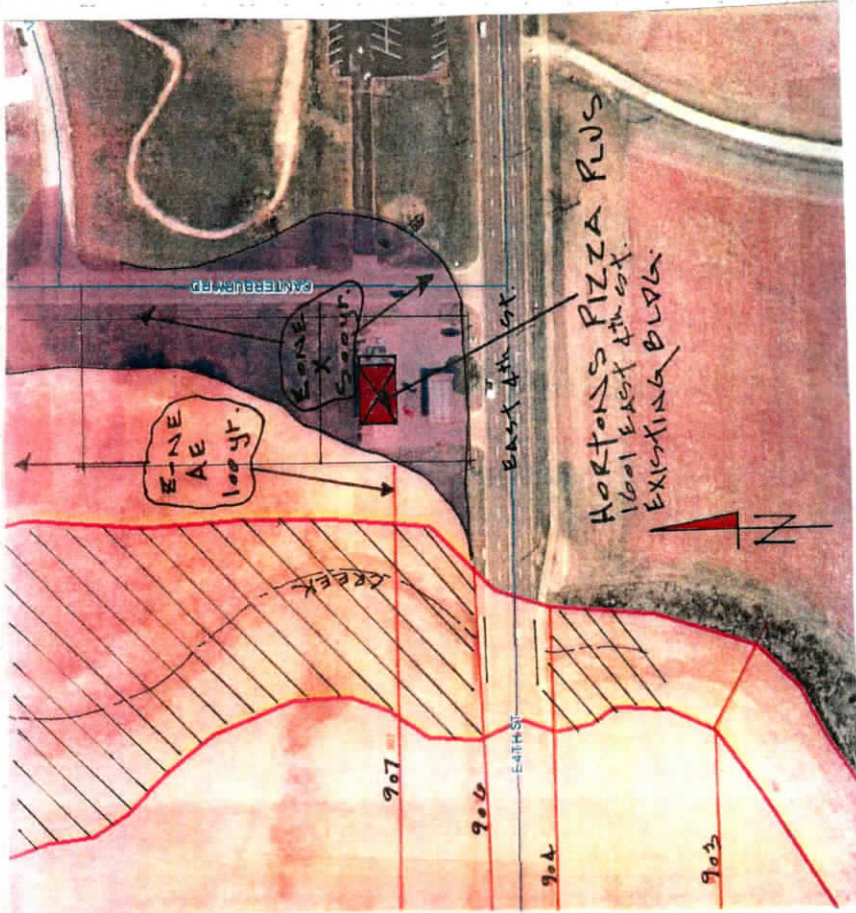 CANTERBURY RD
ZONE
X
500 yr.
ZONE
AE
100 yr.
CREEK
East 4th St.
HORTONS PIZZA PLUS
1601 EAST 4th St.
EXISTING BLDG.
N
907
907
906
E 4TH ST
904
903